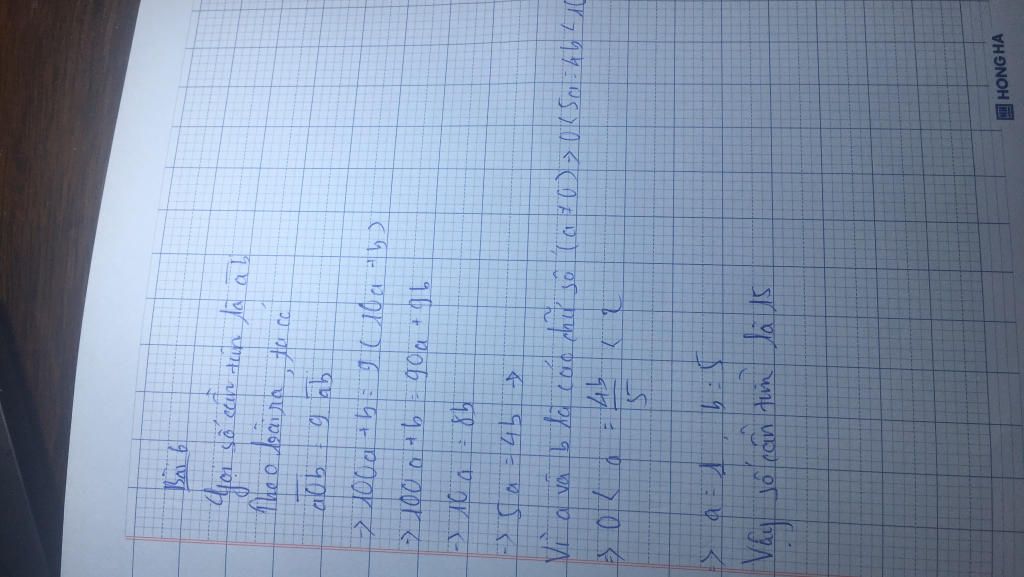 Bài 6
Gọi số cần tìm là ab
Theo bài ra, ta có
a0b = 9 ab
=> 100a + b = 9 (10a + b)
=> 100a + b = 90a + 9b
=> 10a = 8b
=> 5a = 4b →
Vì a và b là các chữ số (a ≠ 0) => 0 < 5a = 4b < 10
=> 0 < a = 4b/5 < 2
=> a = 1, b = 5
Vậy số cần tìm là 15
HONG HA